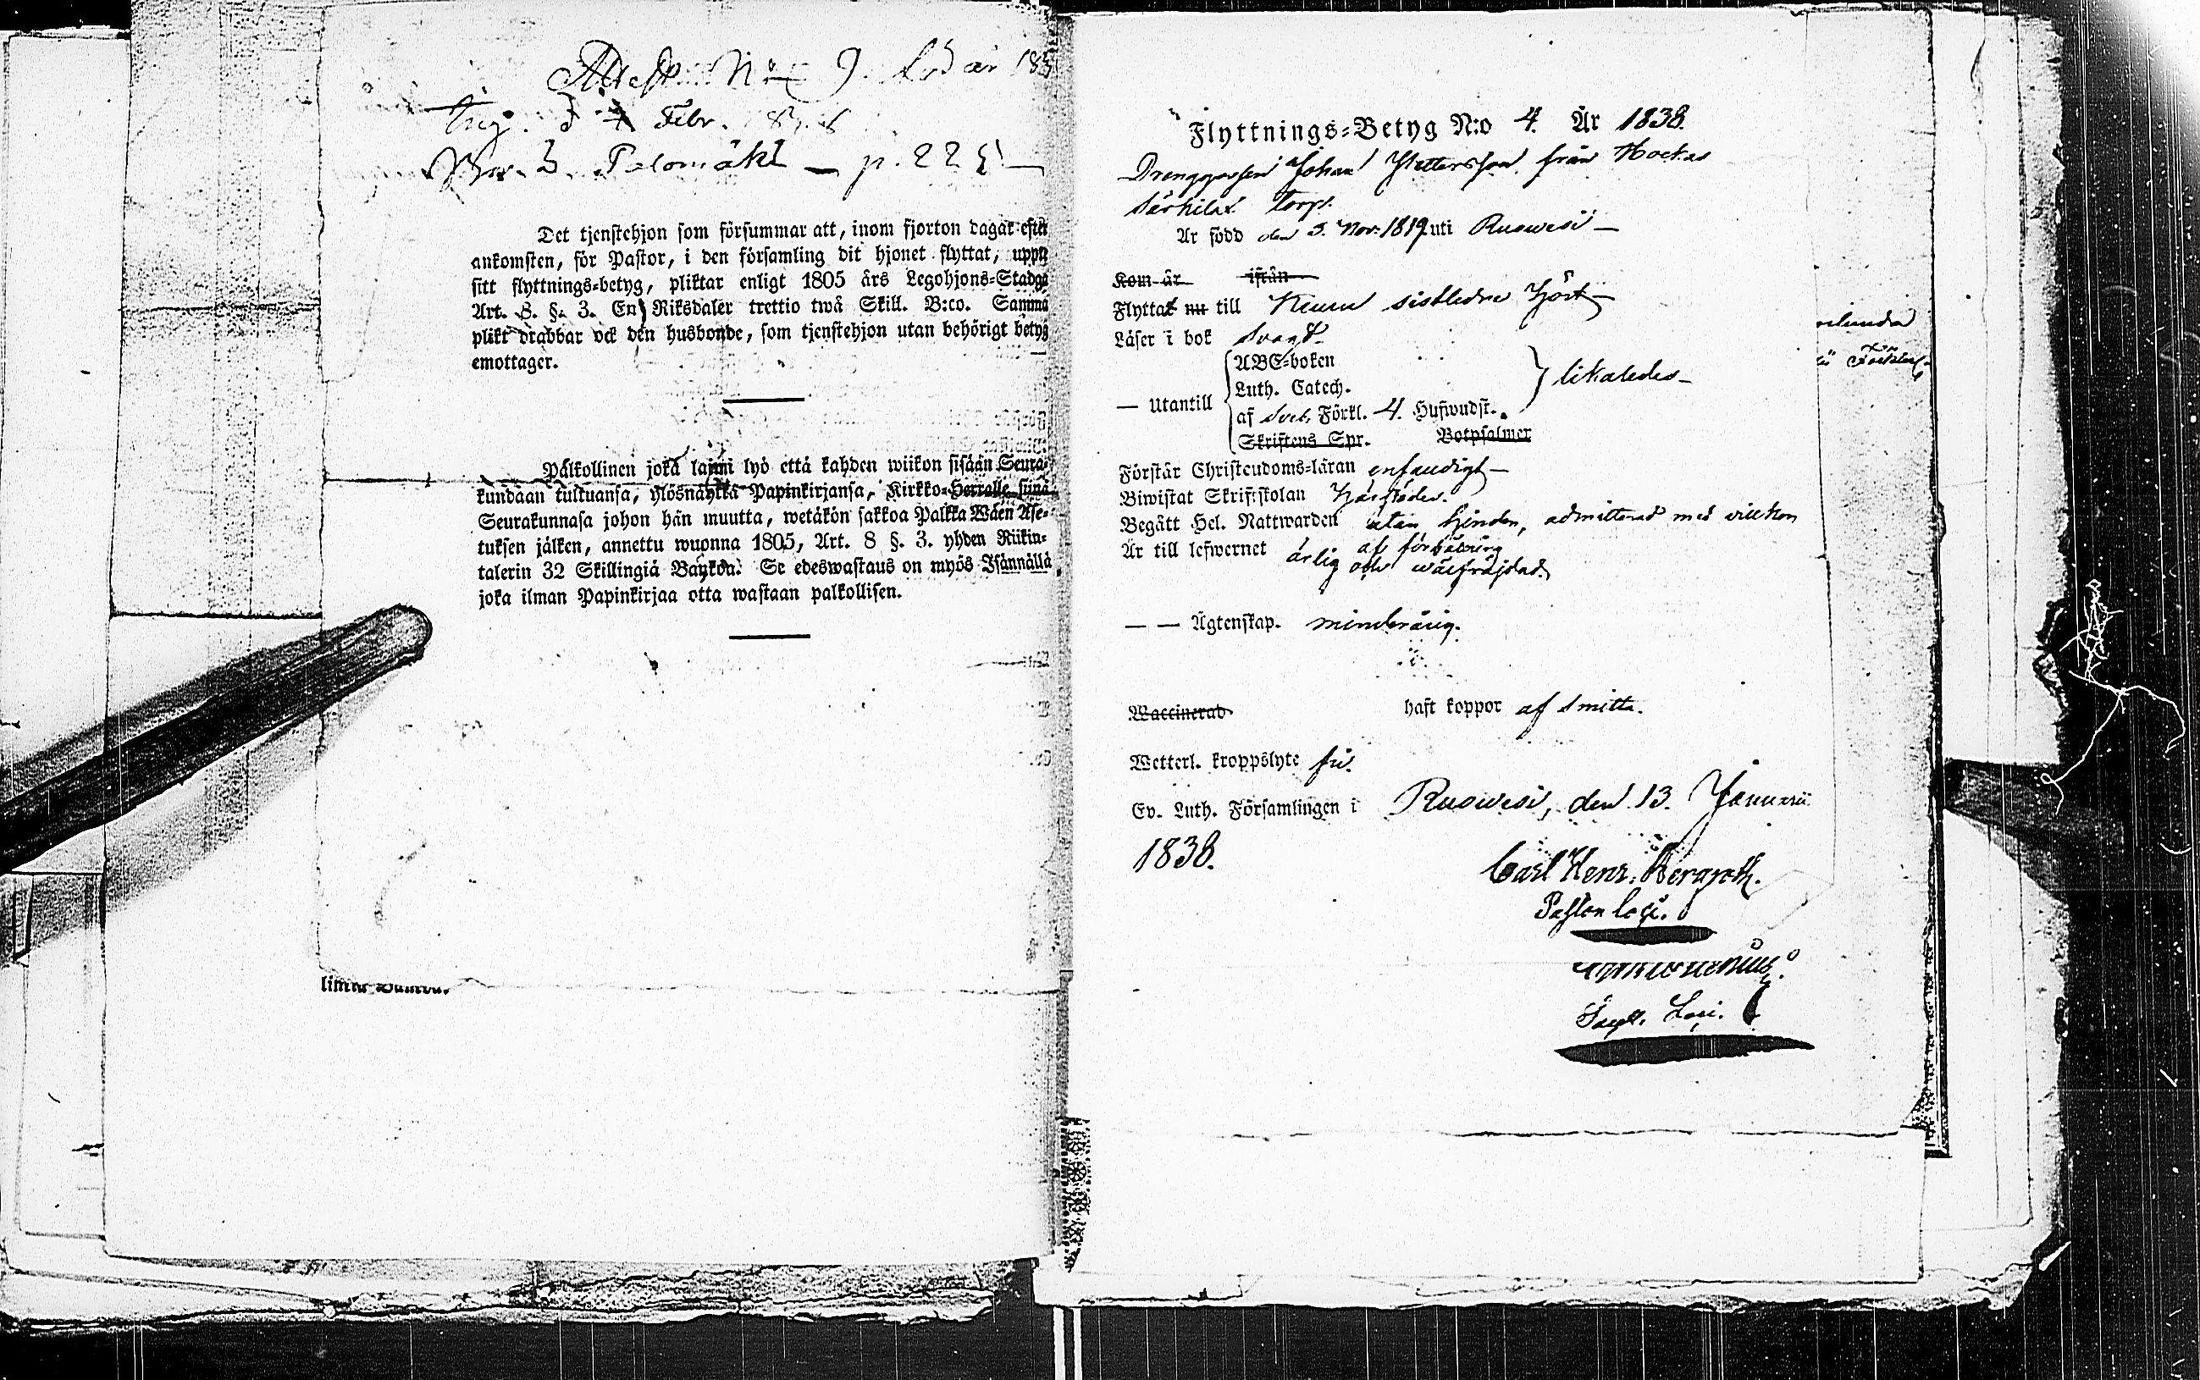 Attest N:o 9. för år 183
Ing. d. 4 Febr. 1838
No. 3. Palomäki — p. 225 —
Det tjenstehjon som försummar att, inom fjorton dagar efter
ankomsten, för Pastor, i den församling dit hjonet flyttat, uppte
sitt flyttnings-betyg, pliktar enligt 1805 års Legohjons-Stadga
Art. 8. §. 3. En Riksdaler trettio twå Skill. B:co. Samma
plikt drabbar ock den husbonde, som tjenstehjon utan behörigt betyg
emottager.
Pälkollinen joka laimi lyö että kahden wiikon sisään Seura-
kundaan tultuansa, ylösnäyttä Papinkirjansa, Kirkko-Herralle siinä
Seurakunnasa johon hän muutta, wetäkön sakkoa Palkka Wäen Ase-
tuksen jälken, annettu wuonna 1805, Art. 8 §. 3. yhden Riikin-
talerin 32 Skillingiä Bankoa. Se edeswastaus on myös Isännällä
joka ilman Papinkirjaa otta wastaan palkollisen.
Flyttnings-Betyg N:o 4. År 1838.
Drenggossen Johan Pettersson från Hockas
Särkilax torp.
Är född den 3. Nov. 1819 uti Ruowesi —
Kom år ifrån
Flyttat nu till Keuru sistledne höst —
Läser i bok svagt
ABC-boken
Luth. Catech.
— Utantill likaledes —
af Sveb. Förkl. 4. Hufwudst.
Skriftens Spr. Botpsalmer
Förstår Christendoms-läran enfaudigt —
Biwistat Skriftskolan härstädes.
Begått Hel. Nattwarden utan hinder, admitterad med villkor
af förbättring
Är till lefwernet ärlig och wälfräjdad.
— — Ägtenskap. minderårig.
Waccinerad haft koppor af smitta.
Wetterl. kroppslyte fri.
Ev. Luth. Församlingen i Ruowesi, den 13. Januarii
1838.
Carl Henr. Bergroth.
Pastor loci.
Loci.